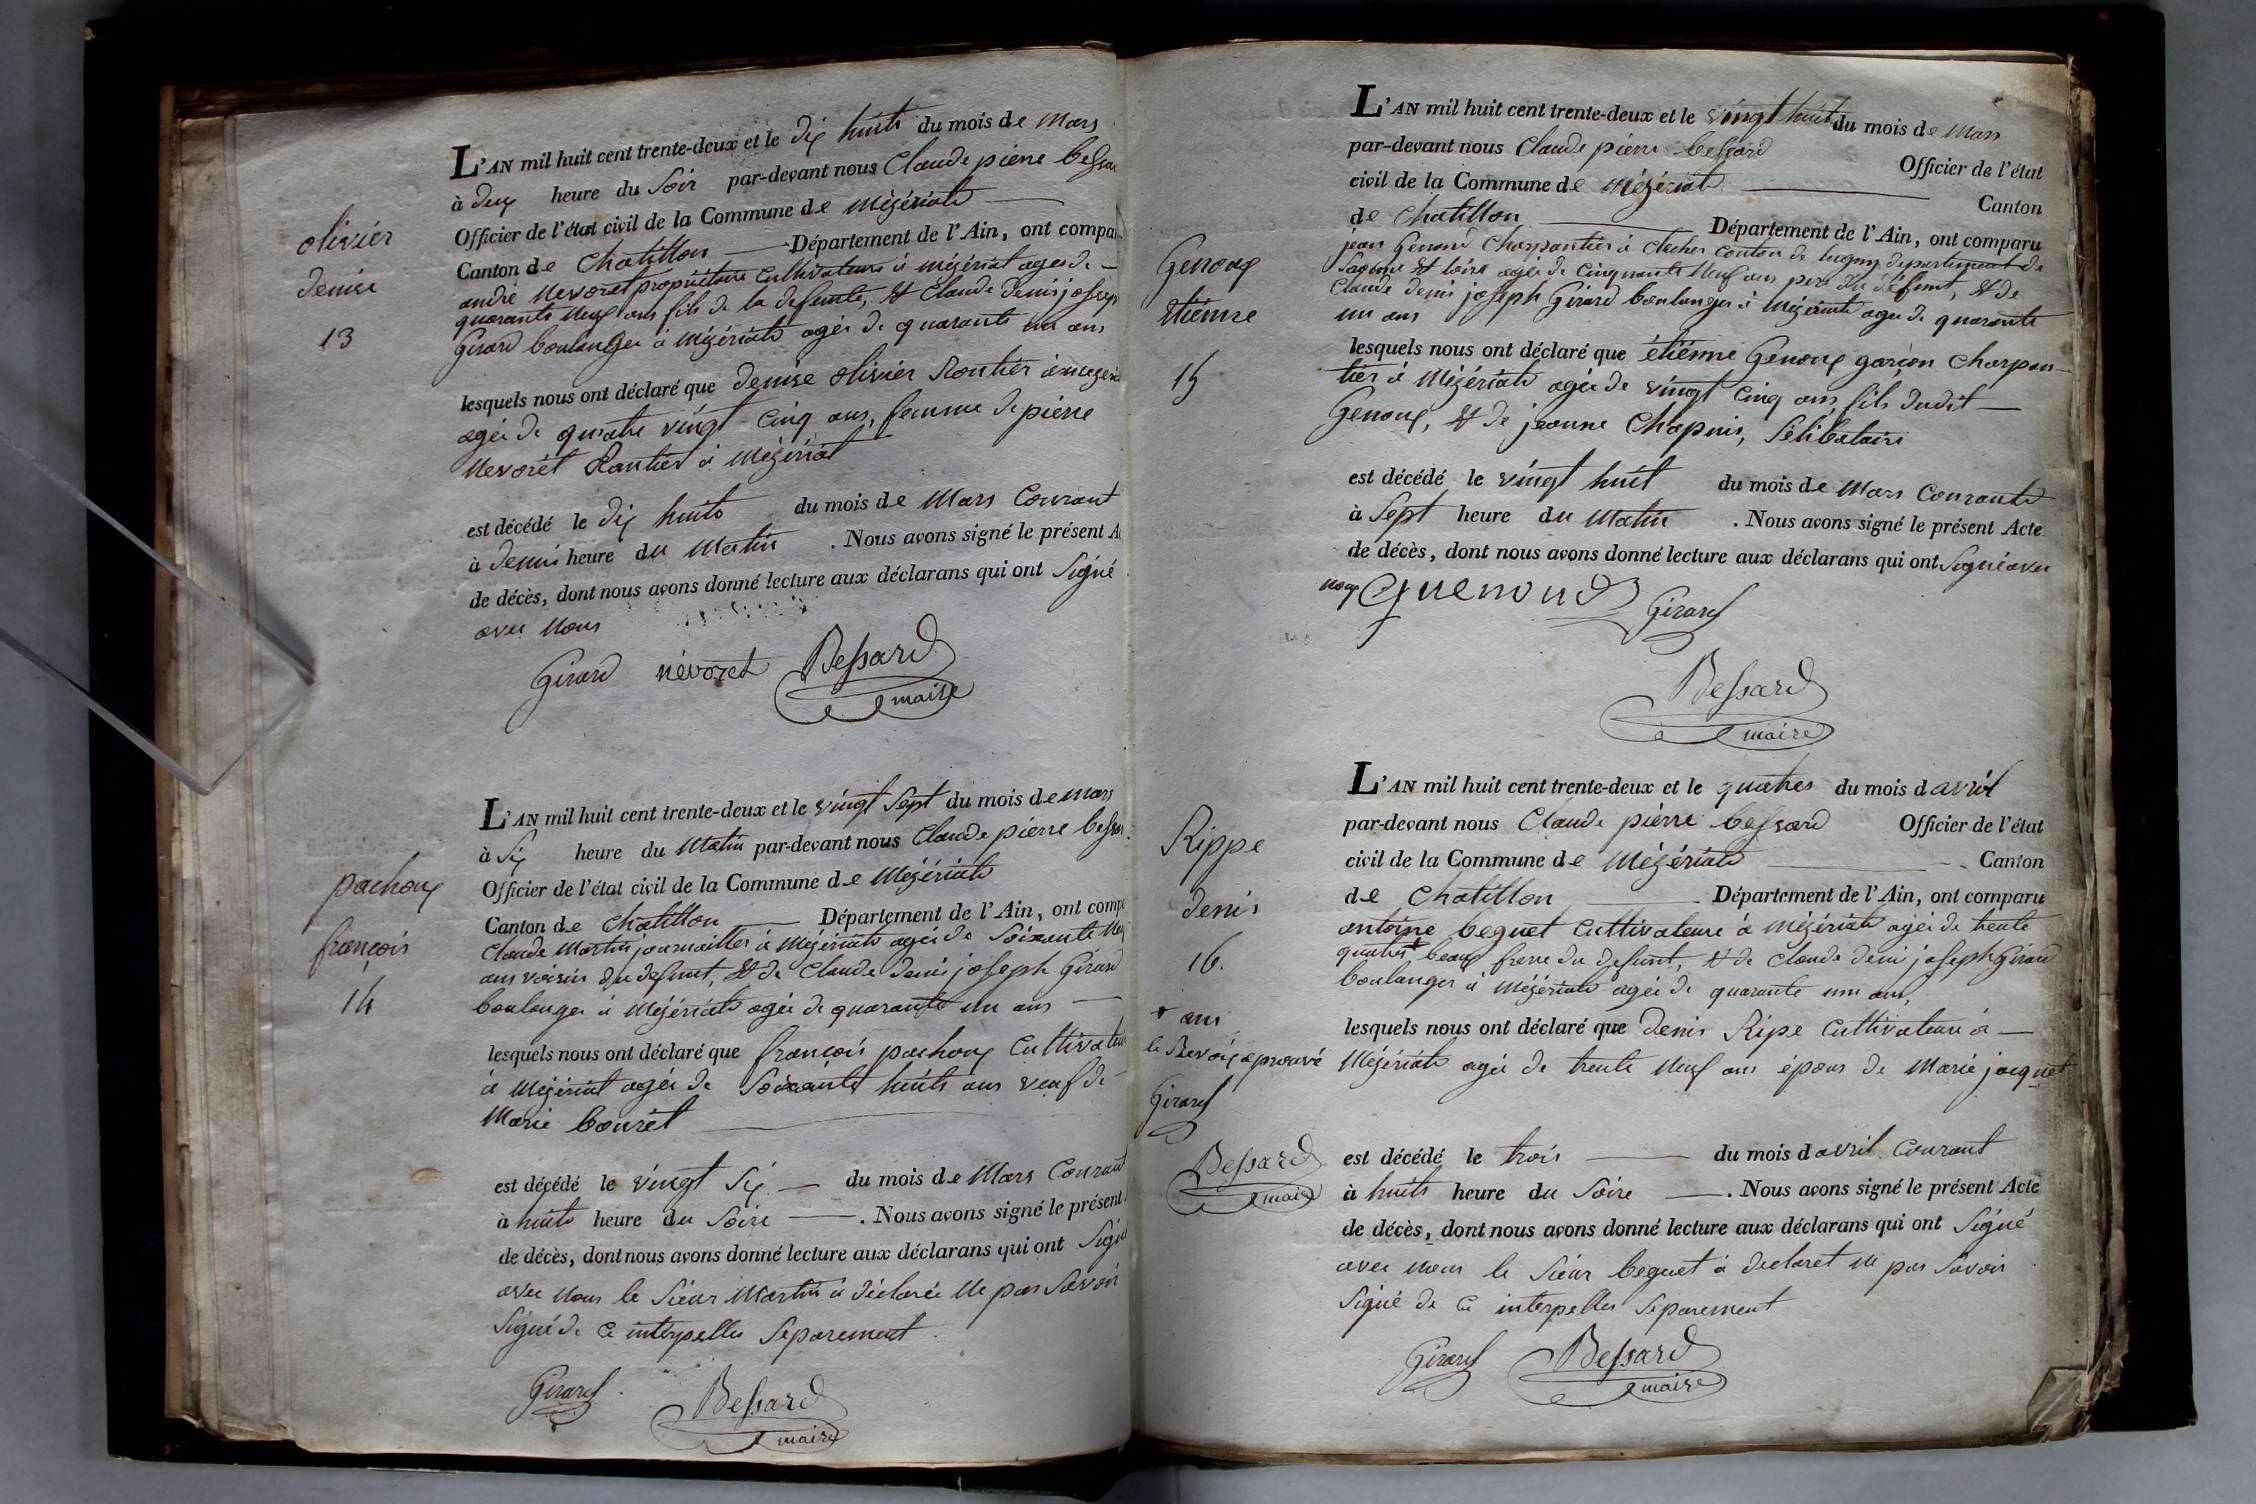 olivier
denise
13
L'AN mil huit cent trente-deux et le dix huits du mois de Mars
à deux heure du Soir par-devant nous Claude pierre bessar
Officier de l'état civil de la Commune de Mézériats
Canton de Chatillon Département de l'Ain, ont compa
andré Nevoret propriétaire Cultivateur à mézériat agés de
quarante Neuf ans fils de la defunte, et Claude denis joseph
Girard boulanger à mézériats agés de quarante un ans
lesquels nous ont déclaré que denise olivier Rontier à mezeria
agés de quatre vingt Cinq ans, femme de pierre
Nevorét Rantier à mézériat
est décédé le dix huits du mois de Mars Courant
à demis heure du Matin . Nous avons signé le présent A
de décès, dont nous avons donné lecture aux déclarans qui ont Signé
avec Nous
Girard névoret Bessard
maire
pachoux
françois
14
L'AN mil huit cent trente-deux et le vingt Sept du mois de mars
à Six heure du Matin par-devant nous Claude pierre bessar
Officier de l'état civil de la Commune de Mézériats
Canton de Chatillon Département de l'Ain, ont comp
Claude Martin journaillier à Mézériats agés de Soixante Neuf
ans voisin du defunt, et de Claude denis joseph Girard
boulanger à Mézériats agés de quarante un ans
lesquels nous ont déclaré que françois pachoux Cultivateu
à Mézériat agés de Soixante huits ans veuf de
Marie bourét
est décédé le vingt Six du mois de Mars Courant
à huits heure du Soire . Nous avons signé le présent
de décès, dont nous avons donné lecture aux déclarans qui ont Signé
avec Nous le Sieur Martin à déclarée Ne pas Savoir
Signé de ce interpellu Separement
Girard Bessard
maire
Genoux
étiénne
15
L'AN mil huit cent trente-deux et le vingt huit du mois de Mars
par-devant nous Claude pierre bessard Officier de l'état
civil de la Commune de Mézériat Canton
de Chatillon Département de l'Ain, ont comparu
jean Genoud Charpantier à Canton de lugny departement de
Saonne et loire agés de Cinquante Neuf ans pere du défunt, et de
Claude denis joseph Girard boulanger à Mézériats agés de quarante
un ans
lesquels nous ont déclaré que étiénne Genoux garçon Charpan
tier à Mézériats agés de vingt Cinq ans, fils dudit
Genoux, et de jeanne Chapuis, Sélibataire
est décédé le vingt huit du mois de Mars Courants
à Sept heure du Matin . Nous avons signé le présent Acte
de décès, dont nous avons donné lecture aux déclarans qui ont Signé avec
nous Guenoud Girard
Bessard
maire
Rippe
denis
16.
+ ans
le Renvois aprouvé
Girard
Bessard
maire
L'AN mil huit cent trente-deux et le quatres du mois d avril
par-devant nous Claude piérre bessard Officier de l'état
civil de la Commune de Mézériats Canton
de Chatillon Département de l'Ain, ont comparu
antoine beguet Cultivateur à Mézériats agés de trente
quatres + beaux frere du defunt, et de Claude denis joseph Girard
boulanger à Mézériats agés de quarante un ans,
lesquels nous ont déclaré que denis Ripe Cultivateur à
Mézériats agés de trente Neuf ans époux de Marie jacquet
est décédé le trois du mois d avril Courant
à huits heure du Soire . Nous avons signé le présent Acte
de décès, dont nous avons donné lecture aux déclarans qui ont Signé
avec nous le Sieur beguet à declaret ne pas Savoir
Signé de ce interpellu Séparement
Girard Bessard
maire